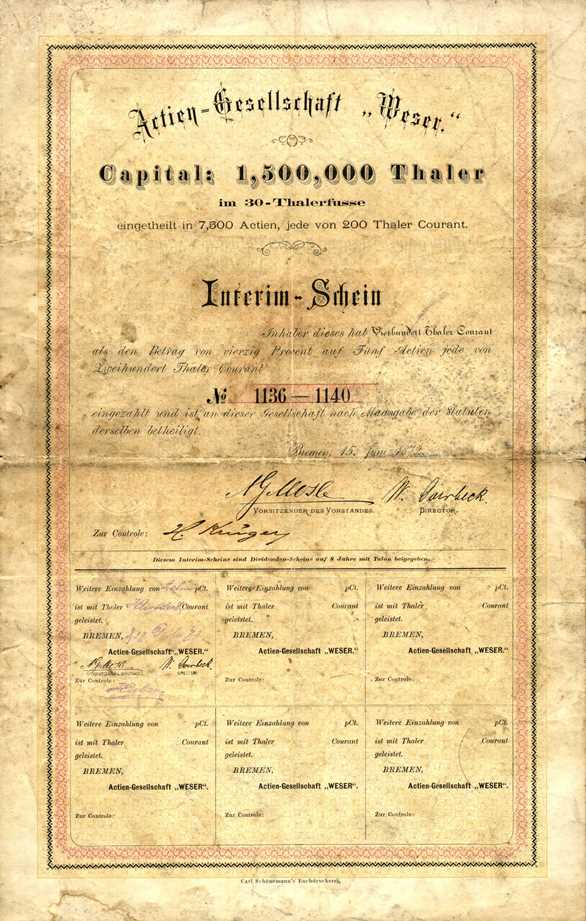 Actien-Gesellschaft „Weser."
Capital: 1,500,000 Thaler
im 30-Thalerfusse
eingetheilt in 7,500 Actien, jede von 200 Thaler Courant.
Interim-Schein
Inhaber dieses hat Vierhundert Thaler Courant
als den Betrag von vierzig Procent auf Fünf Actien jede von
Zweihundert Thaler Courant
№ 1136—1140
eingezahlt und ist an dieser Gesellschaft nach Maasgabe der Statuten
derselben betheiligt.
Bremen, 15. Juni
VORSITZENDER DES VORSTANDES. DIRECTOR.
Zur Controle: H Krüger
Diesem Interim-Scheine sind Dividenden-Scheine auf 8 Jahre mit Talon beigegeben.
Weitere Einzahlung von pCt.
ist mit Thaler Courant
geleistet.
BREMEN,
Actien-Gesellschaft „WESER."
Zur Controle:
Weitere Einzahlung von pCt.
ist mit Thaler Courant
geleistet.
BREMEN,
Actien-Gesellschaft „WESER."
Zur Controle:
Weitere Einzahlung von pCt.
ist mit Thaler Courant
geleistet.
BREMEN,
Actien-Gesellschaft „WESER."
Zur Controle:
Weitere Einzahlung von pCt.
ist mit Thaler Courant
geleistet.
BREMEN,
Actien-Gesellschaft „WESER".
Zur Controle:
Weitere Einzahlung von pCt.
ist mit Thaler Courant
geleistet.
BREMEN,
Actien-Gesellschaft „WESER".
Zur Controle:
Weitere Einzahlung von pCt.
ist mit Thaler Courant
geleistet.
BREMEN,
Actien-Gesellschaft „WESER".
Zur Controle:
Carl Schünemann's Buchdruckerei.